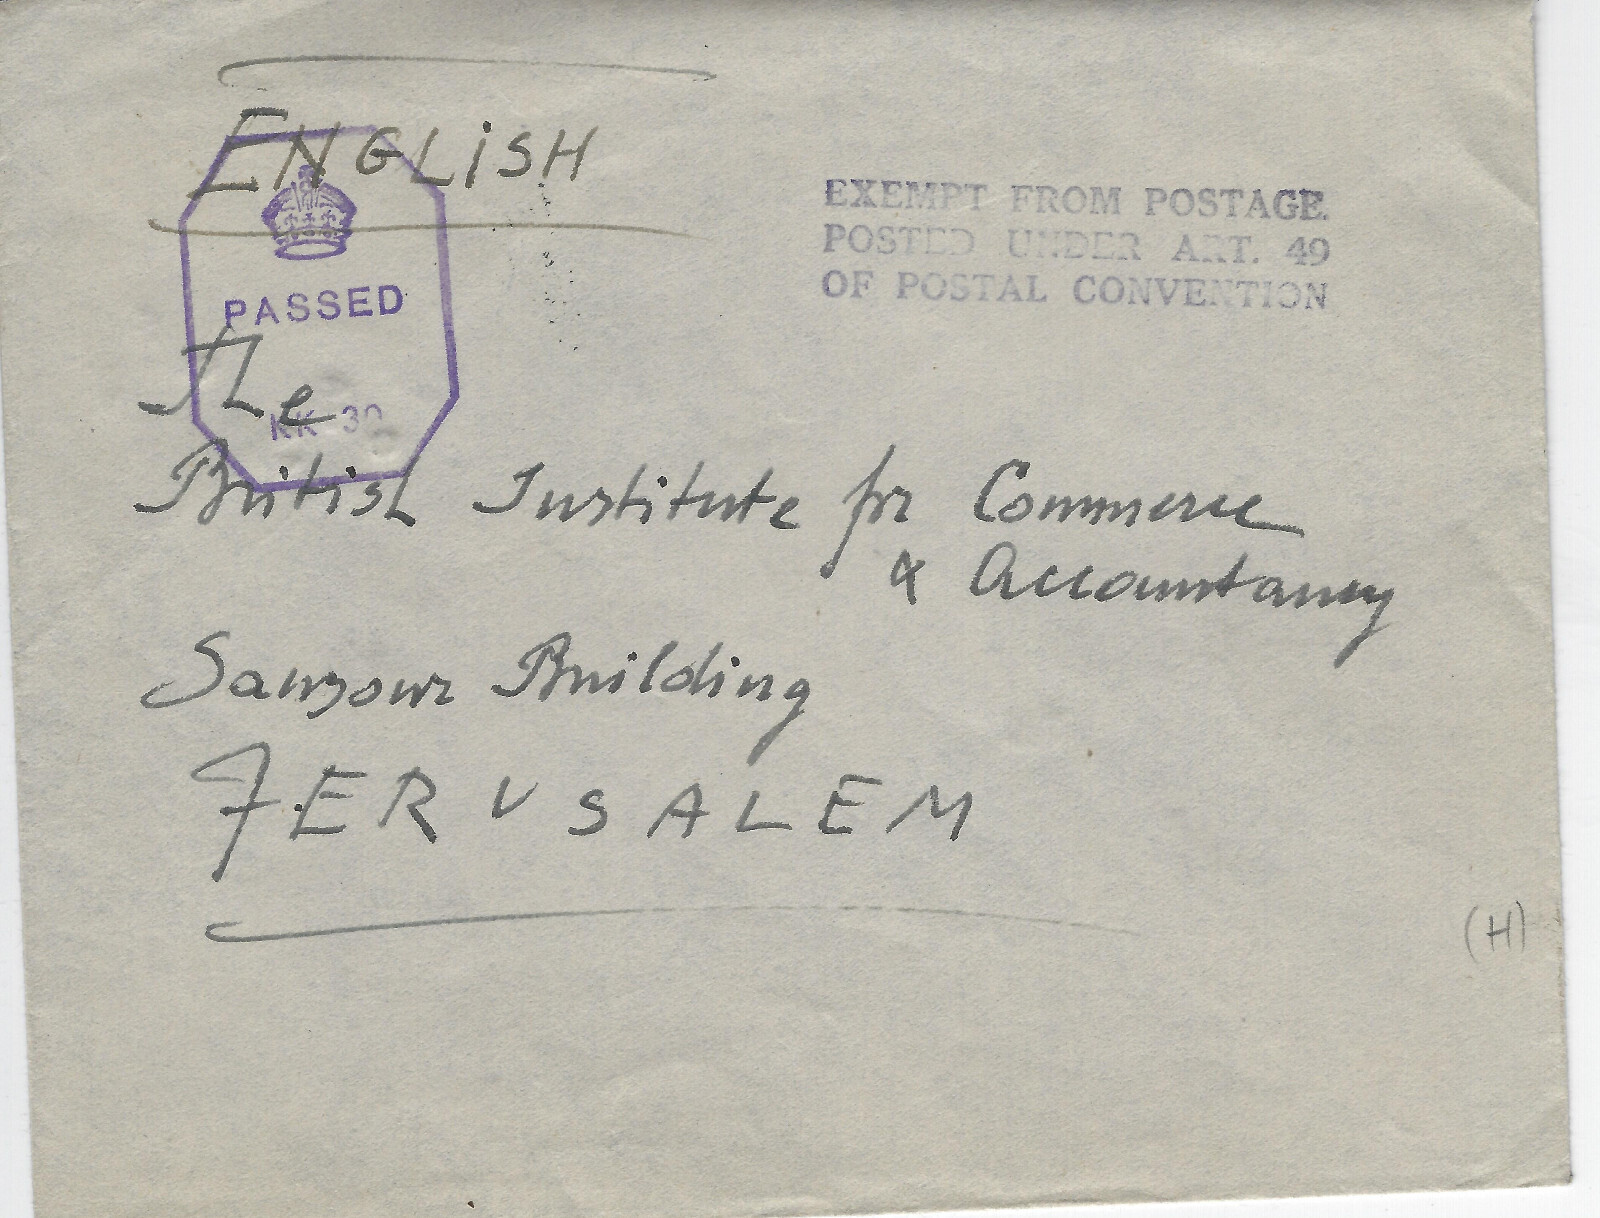 ENGLISH
EXEMPT FROM POSTAGE.
POSTED UNDER ART. 49
OF POSTAL CONVENTION
PASSED
KK 30
The
British Institute for Commerce
& Accountancy
Sansour Building
JERUSALEM
(H)